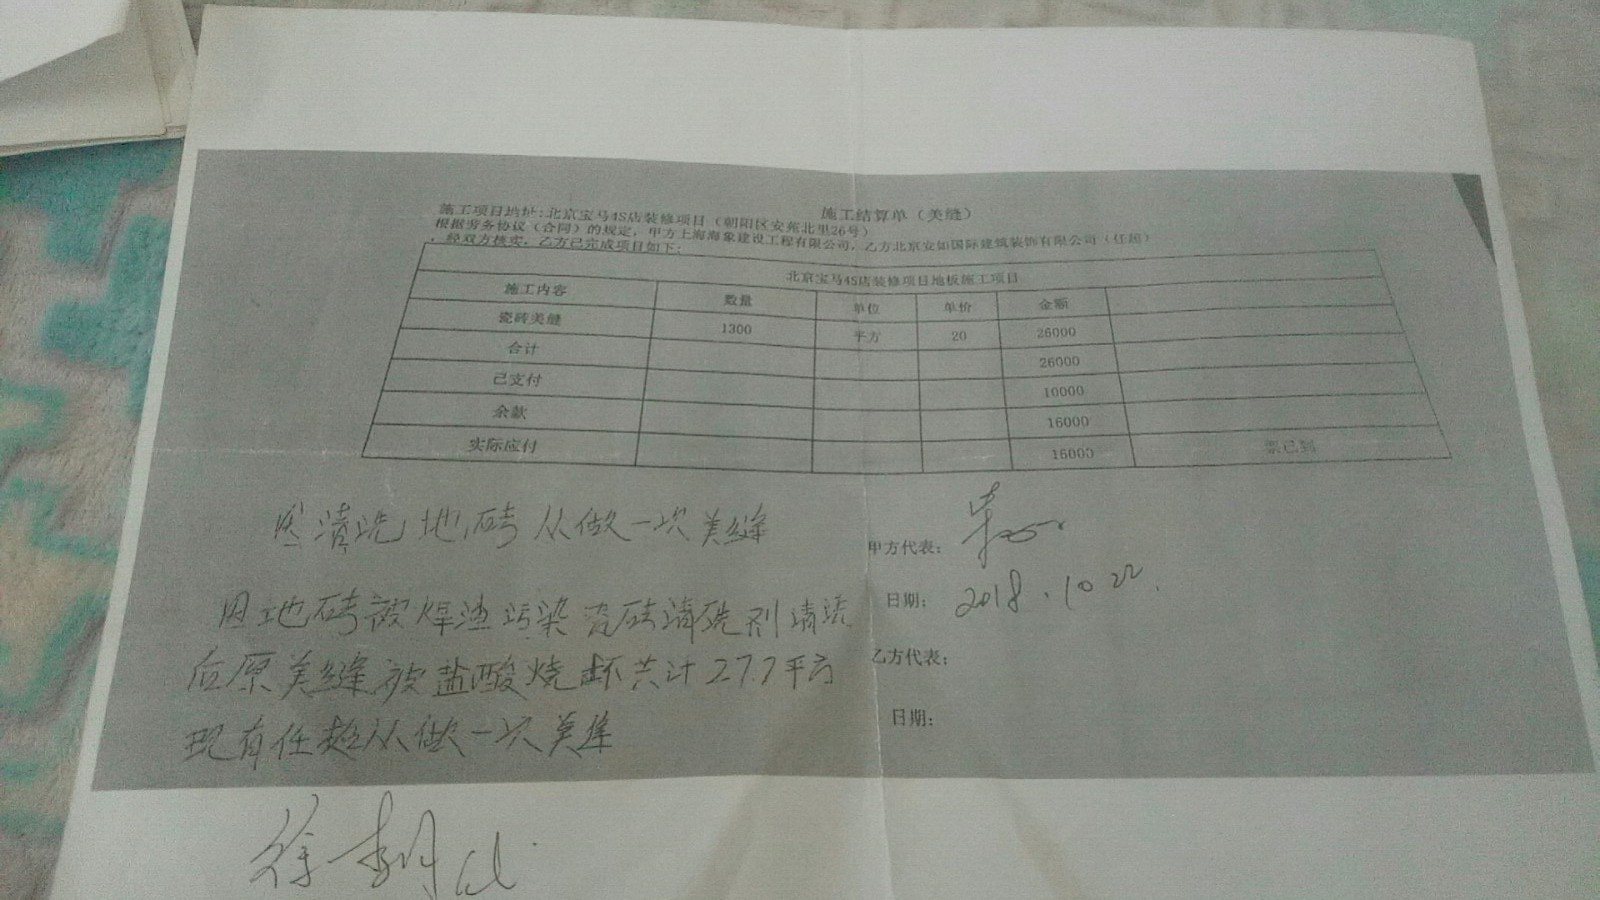 施工结算单（美缝）
施工项目地址:北京宝马4S店装修项目（朝阳区安苑北里26号）
根据劳务协议（合同）的规定，甲方上海海象建设工程有限公司，乙方北京安如国际建筑装饰有限公司（任超）
，经双方核实，乙方已完成项目如下：
北京宝马4S店装修项目地板施工项目
施工内容 数量 单位 单价 金额
瓷砖美缝 1300 平方 20 26000
合计 26000
已支付 10000
余款 16000
实际应付 16000 票已到
因清洗地砖从做一次美缝
甲方代表：
因地砖被焊渣污染瓷砖清洗剂清洁
日期： 2018.10.22.
后原美缝被盐酸烧坏共计277平方
乙方代表：
现有任超从做一次美缝
日期：